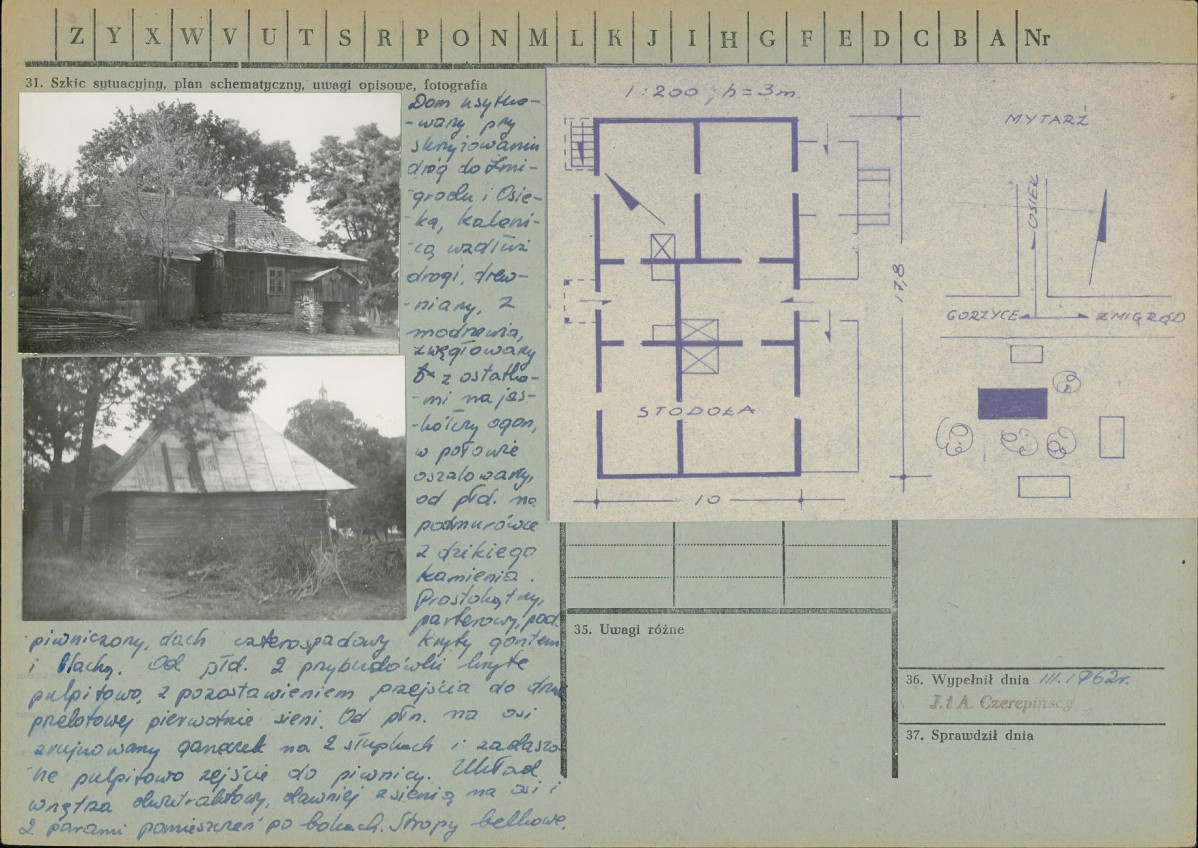 Z Y X W V U T S R P O N M L K J I H G F E D C B A Nr
31. Szkic sytuacyjny, plan schematyczny, uwagi opisowe, fotografia
Dom usytuo-
-wany przy
skrzyżowaniu
dróg do Żmi-
-grodu i Osie-
-ka, kaleni-
-cą wzdłuż
drogi, drew-
-niany, z
modrzewia,
zwęgłowany
z ostatka-
-mi na jas-
-kółczy ogon,
w połowie
oszalowany,
od płd. na
podmurówce
z dzikiego
kamienia.
Prostokątny,
parterowy, pod-
piwniczony, dach czterospadowy kryty gontem
i blachą. Od płd. 2 przybudówki kryte
pulpitowo, z pozostawieniem przejścia do drzwi
przelotowej pierwotnie sieni. Od płn. na osi
zrujnowany ganeczek na 2 słupkach i zadaszo-
ne pulpitowo zejście do piwnicy. Układ
wnętrza dwutraktowy, dawniej z sienią na osi i
2 parami pomieszczeń po bokach. Stropy belkowe.
1:200; h=3m.
STODOŁA
17,8
10
MYTARŻ
OSIEK
GORZYCE
ŻMIGRÓD
35. Uwagi różne
36. Wypełnił dnia III.1962r.
J. i A. Czerepińscy
37. Sprawdził dnia